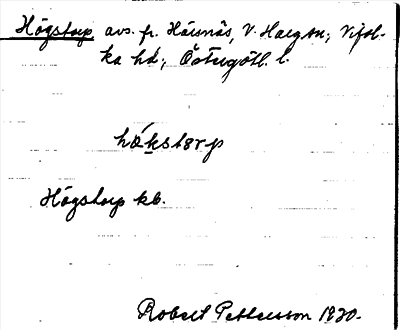 Högstorp avs. fr. Härsnäs, V. Harg sn; Vifol-
ka hd; Östergötl. l.
hǿkstərp
Högstorp kb.
Robert Pettersson 1930.